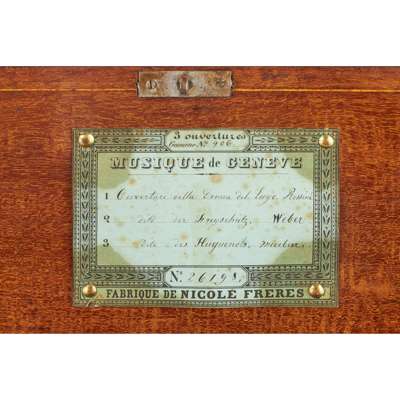 3 ouvertures
Gamme No. 906
MUSIQUE de GENÈVE
1 Ouverture della Donna del Lago Rossini
2 dito der Freyschutz Weber
3 dito des Huguenots
No. 26198
FABRIQUE DE NICOLE FRERES